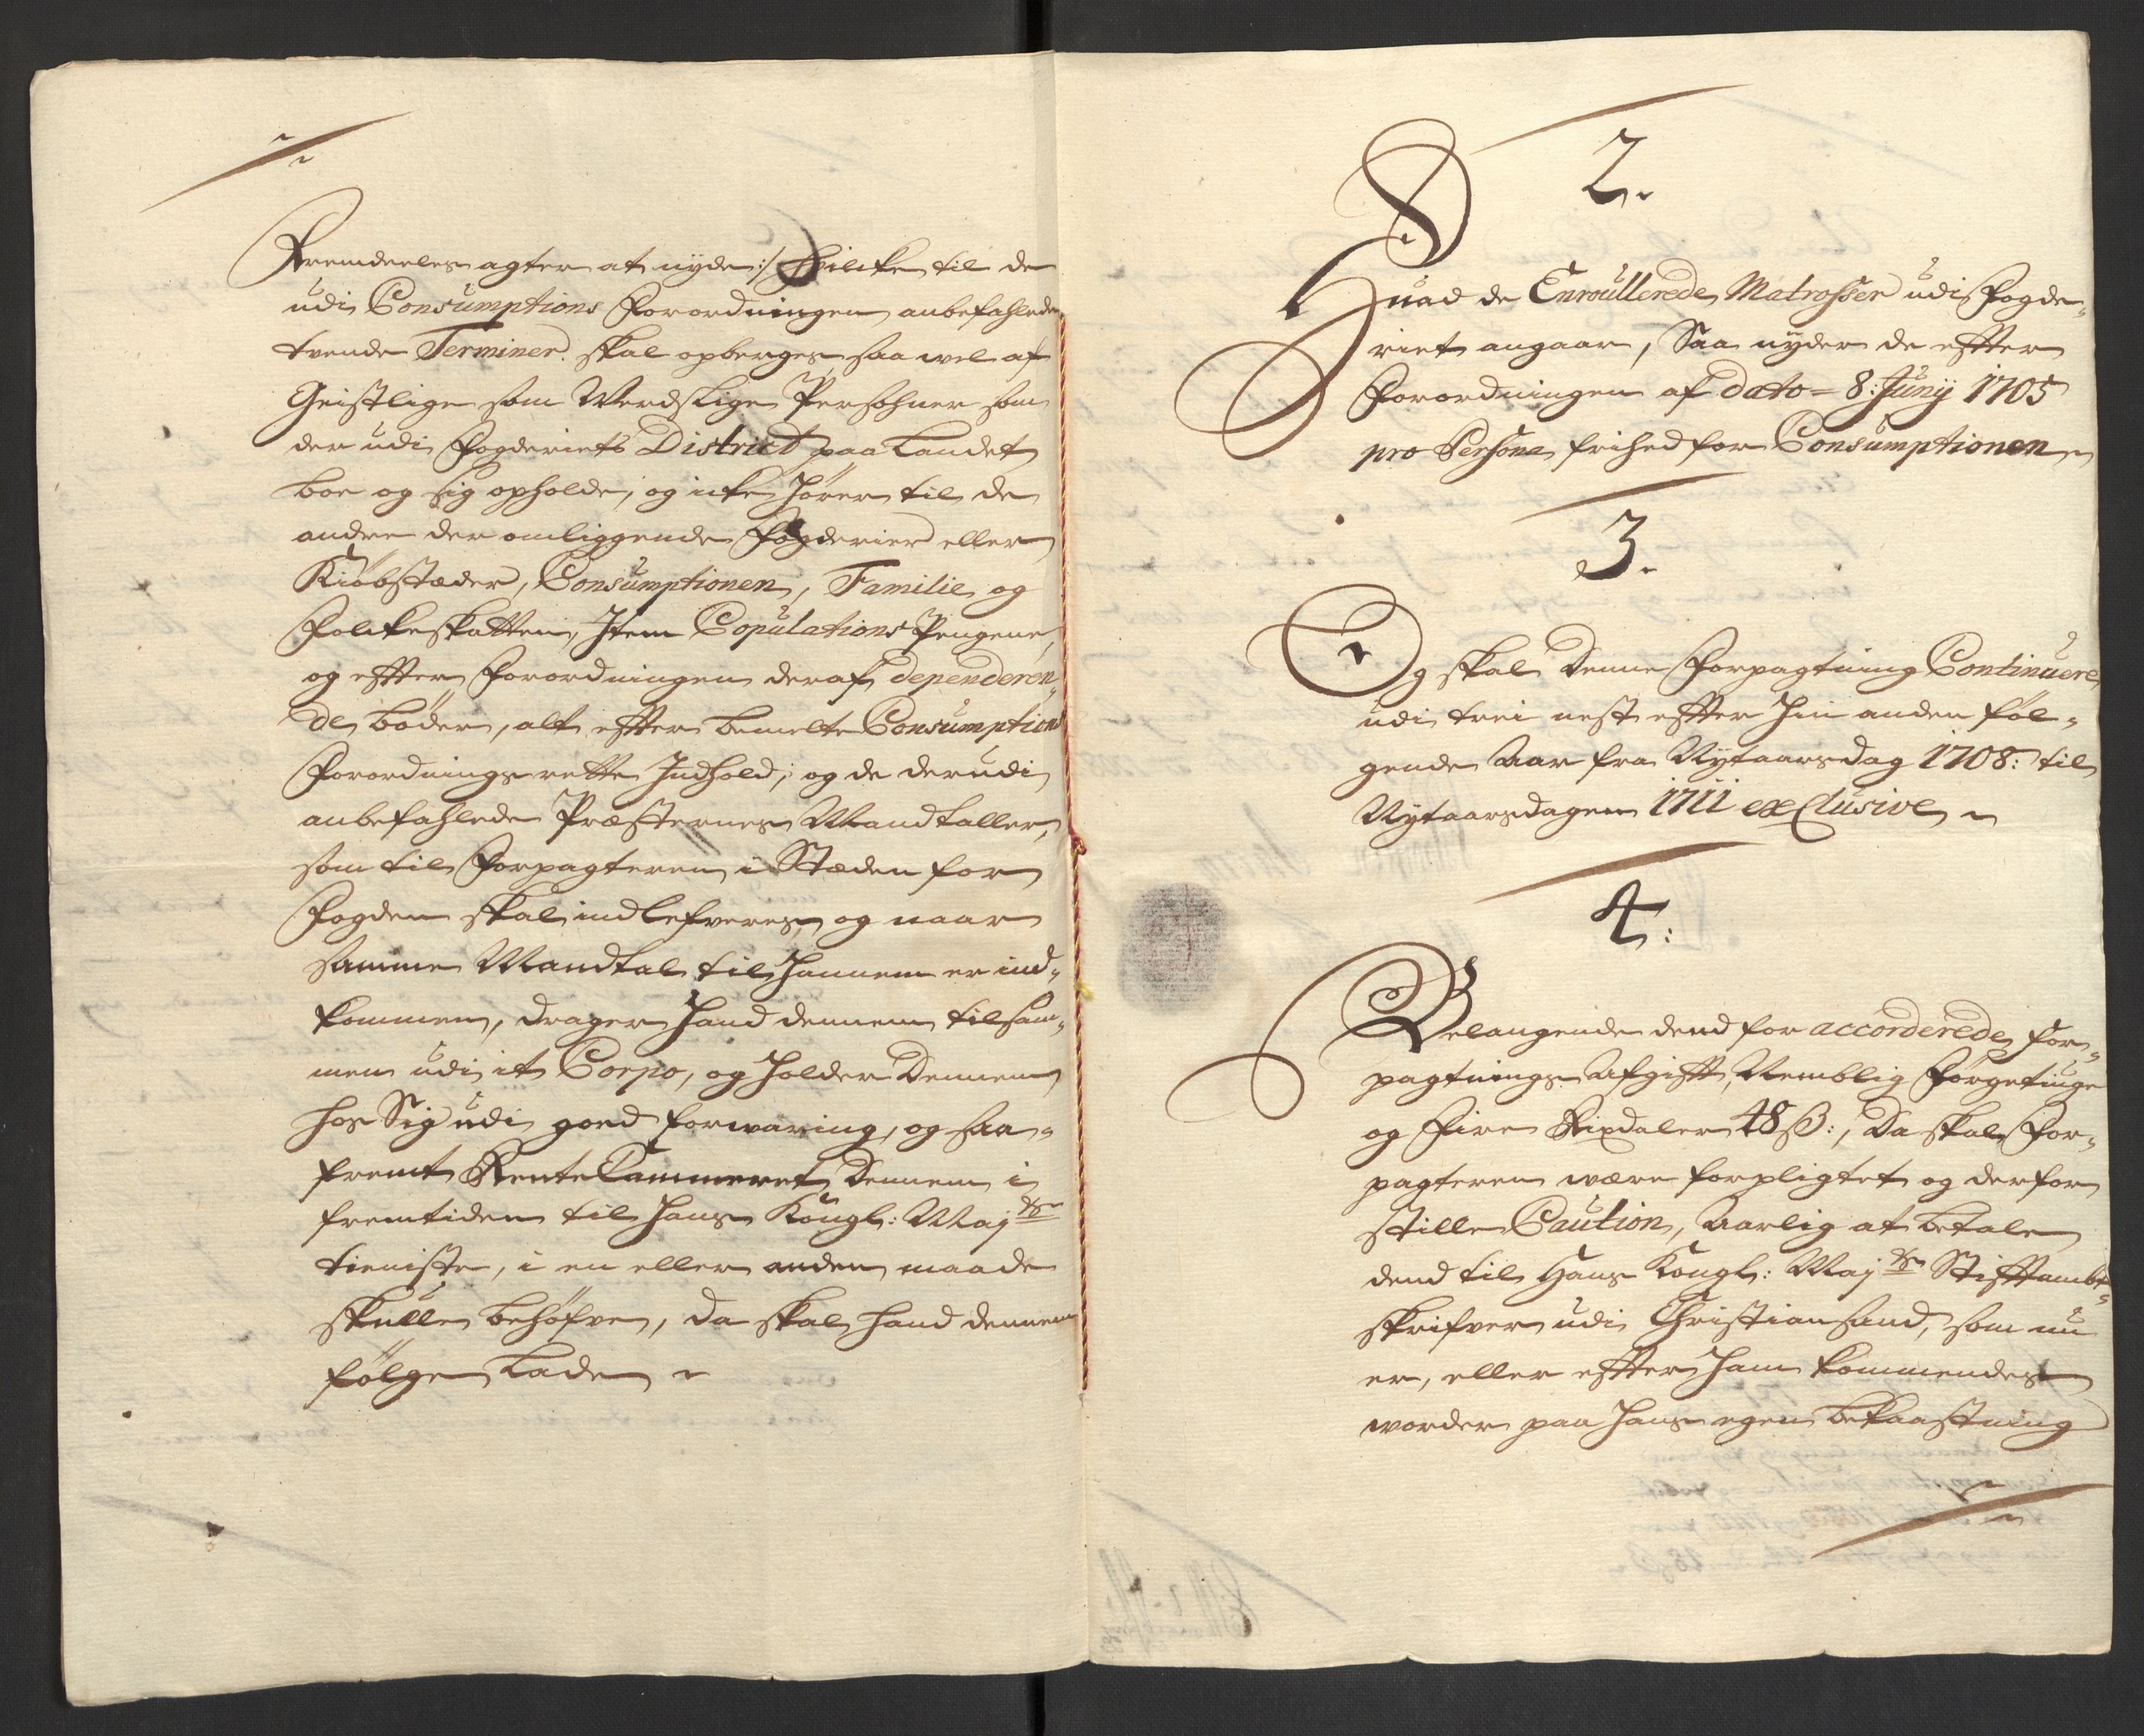 Fremdeeles agter at nyde :/ hvilcke til de
udi Consumptions Forordningen anbefahlede
tvende Terminer skal opberges saa wel af
Geistlige som Werdslige Persohner som
der udi Fogderiets District paa Landet
boe og sig opholde, og icke hører til de
andre der omliggende Fogderier eller
Kiøbstæder, Consumptionen, Familie og
Folckeskatten, Item Copulations Pengene,
og efter Forordningen deraf dependeren-
de bøder, alt efter bemelte Consumptions
Forordnings rette Indhold; og de derudi
anbefahlede Præsternes Mandtaller,
som til Forpagteren i Stæden for
Fogden skal indlefveres, og naar
samme Mandtal til hannem er ind-
kommen, drager hand dennem tilsam-
men udi it Corpo, og holder dennem
hos Sig udi goed forwaring, og saa-
fremt RenteCammeret dennem i
fremtiden til hans Kongl: Maj:ts
tieniste, i en eller anden maade
skulle behøfve, da skal hand dennem
følge lade
2.
Huad de Enroullerede Matrosser udi Fogde-
riet angaar, Saa nyder de efter
Forordningen af dato 8: Junij 1705
pro Persona frihed for Consumptionen
3.
Og skal denne Forpagtning Continuere
udi trei nest efter hin anden føl-
gende Aar fra Nytaarsdag 1708: til
Nytaarsdagen 1711 exclusive
4:
Belangende dend for accorderede For-
pagtnings Afgift, Nemblig Førgetiuge
og Fire Rixdaler 48 ß:, Da skal For-
pagteren være forpligtet og derfor
stille Caution, Aarlig at betale
dend til Hans Kongl: Maj:ts Stiftambt-
skrifver udi Christiansand, som nu
er, eller efter ham kommendes
worder paa hans egen bekaastning